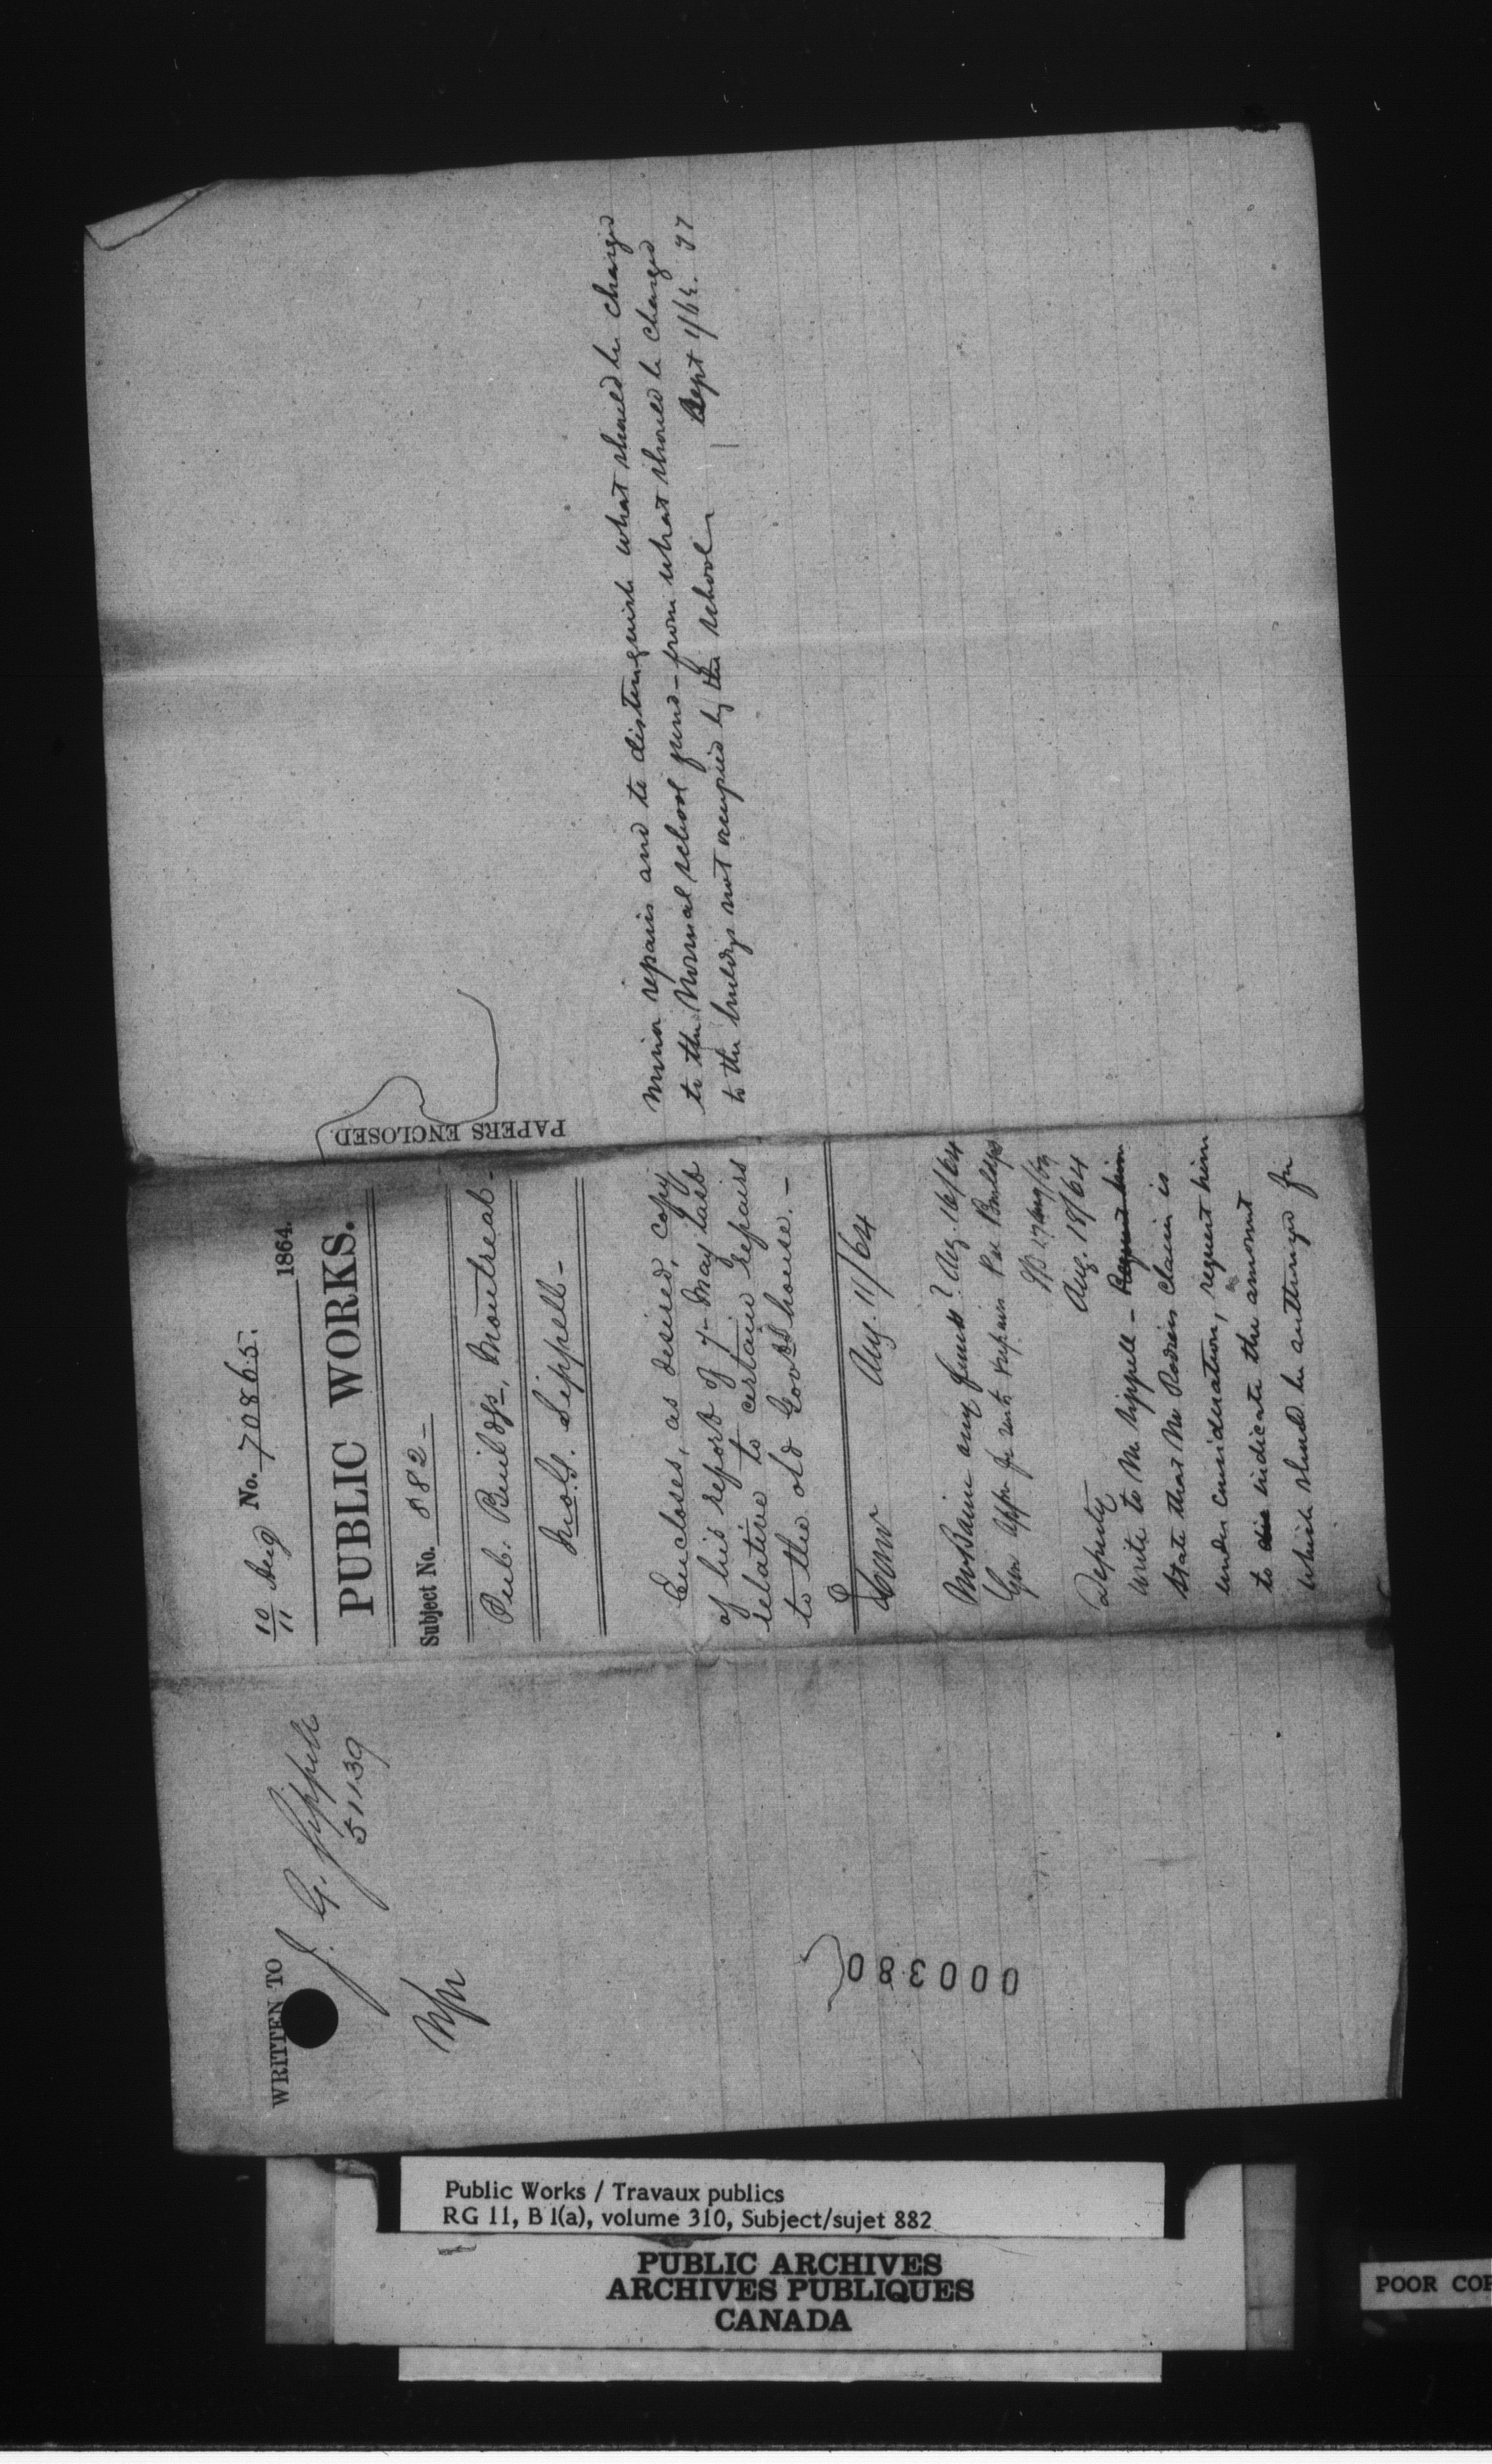 WRITTEN TO
J. G. Sippell
51139
10/11 Aug No. 70865. 1864.
PUBLIC WORKS.
Subject No. 882-
Pub. Buildgs, Montreal-
Jno. G. Sippell-
Encloses, as desired, copy
of his report of 7- May last
relative to certain repairs
to the old Govt house.-
Aug. 11/64
Mr Baine any funds? Aug. 16/64
Gen appn for rents & repairs Pub Buildgs
Aug. 18/64
Deputy
Write to Mr Sippell - Request him
State that Mr Rodiers claim is
under consideration, request him
to indicate the amount
which should be authorized for
PAPERS ENCLOSED.
minor repairs and to distinguish what should be charged
to the Normal school fund - from what should be charged
to the buildgs not occupied by the school
Sept 1/64.
000380
Public Works / Travaux publics
RG 11, B 1(a), volume 310, Subject/sujet 882
PUBLIC ARCHIVES
ARCHIVES PUBLIQUES
CANADA
POOR COP